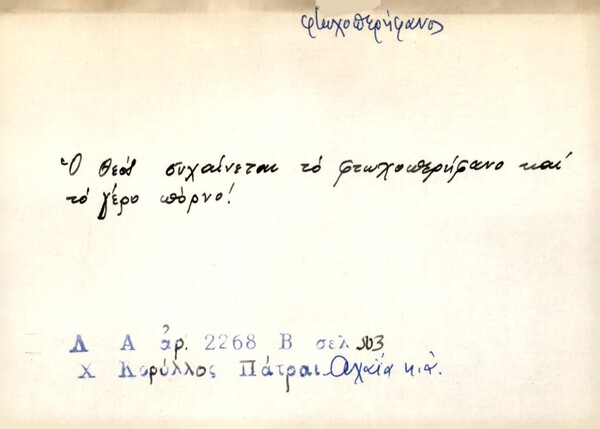 φτωχοπερήφανος
Ὁ Θεός συχαίνεται τό φτωχοπερήφανο καί
τό γέρο πόρνο!
Λ Α ἀρ. 2268 Β σελ 503
Χ Κορύλλος Πάτραι Ἀχαΐα κ.ἀ.